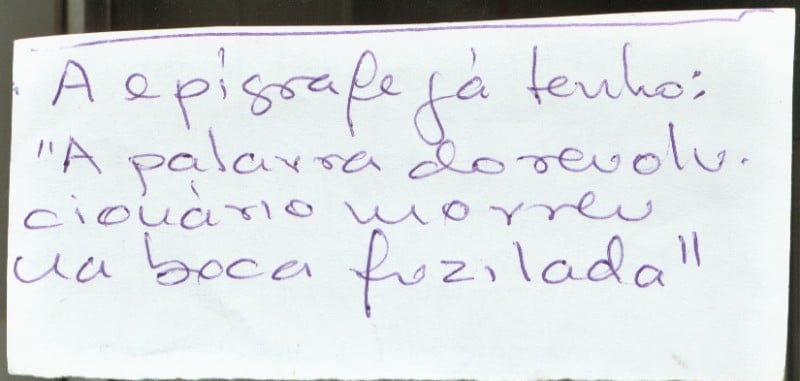 A epígrafe já tenho:
"A palavra do revolu-
cionário morreu
na boca fuzilada"